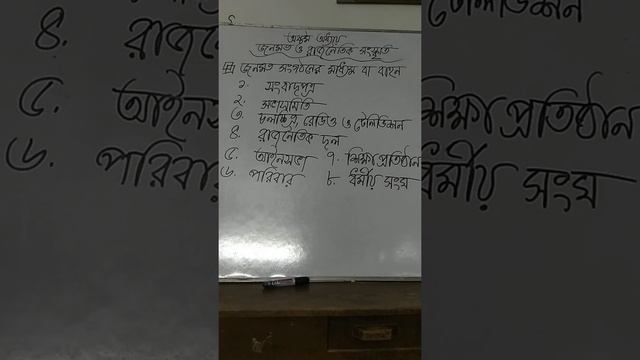 অষ্টম অধ্যায়
জনমত ও রাজনৈতিক সংস্কৃতি
জনমত সংগঠনের মাধ্যম বা বাহন
১. সংবাদপত্র
২. সভাসমিতি
৩. চলচ্চিত্র, রেডিও ও টেলিভিশন
৪. রাজনৈতিক দল
৫. আইনসভা ৭. শিক্ষা প্রতিষ্ঠান
৬. পরিবার ৮. ধর্মীয় সংঘ